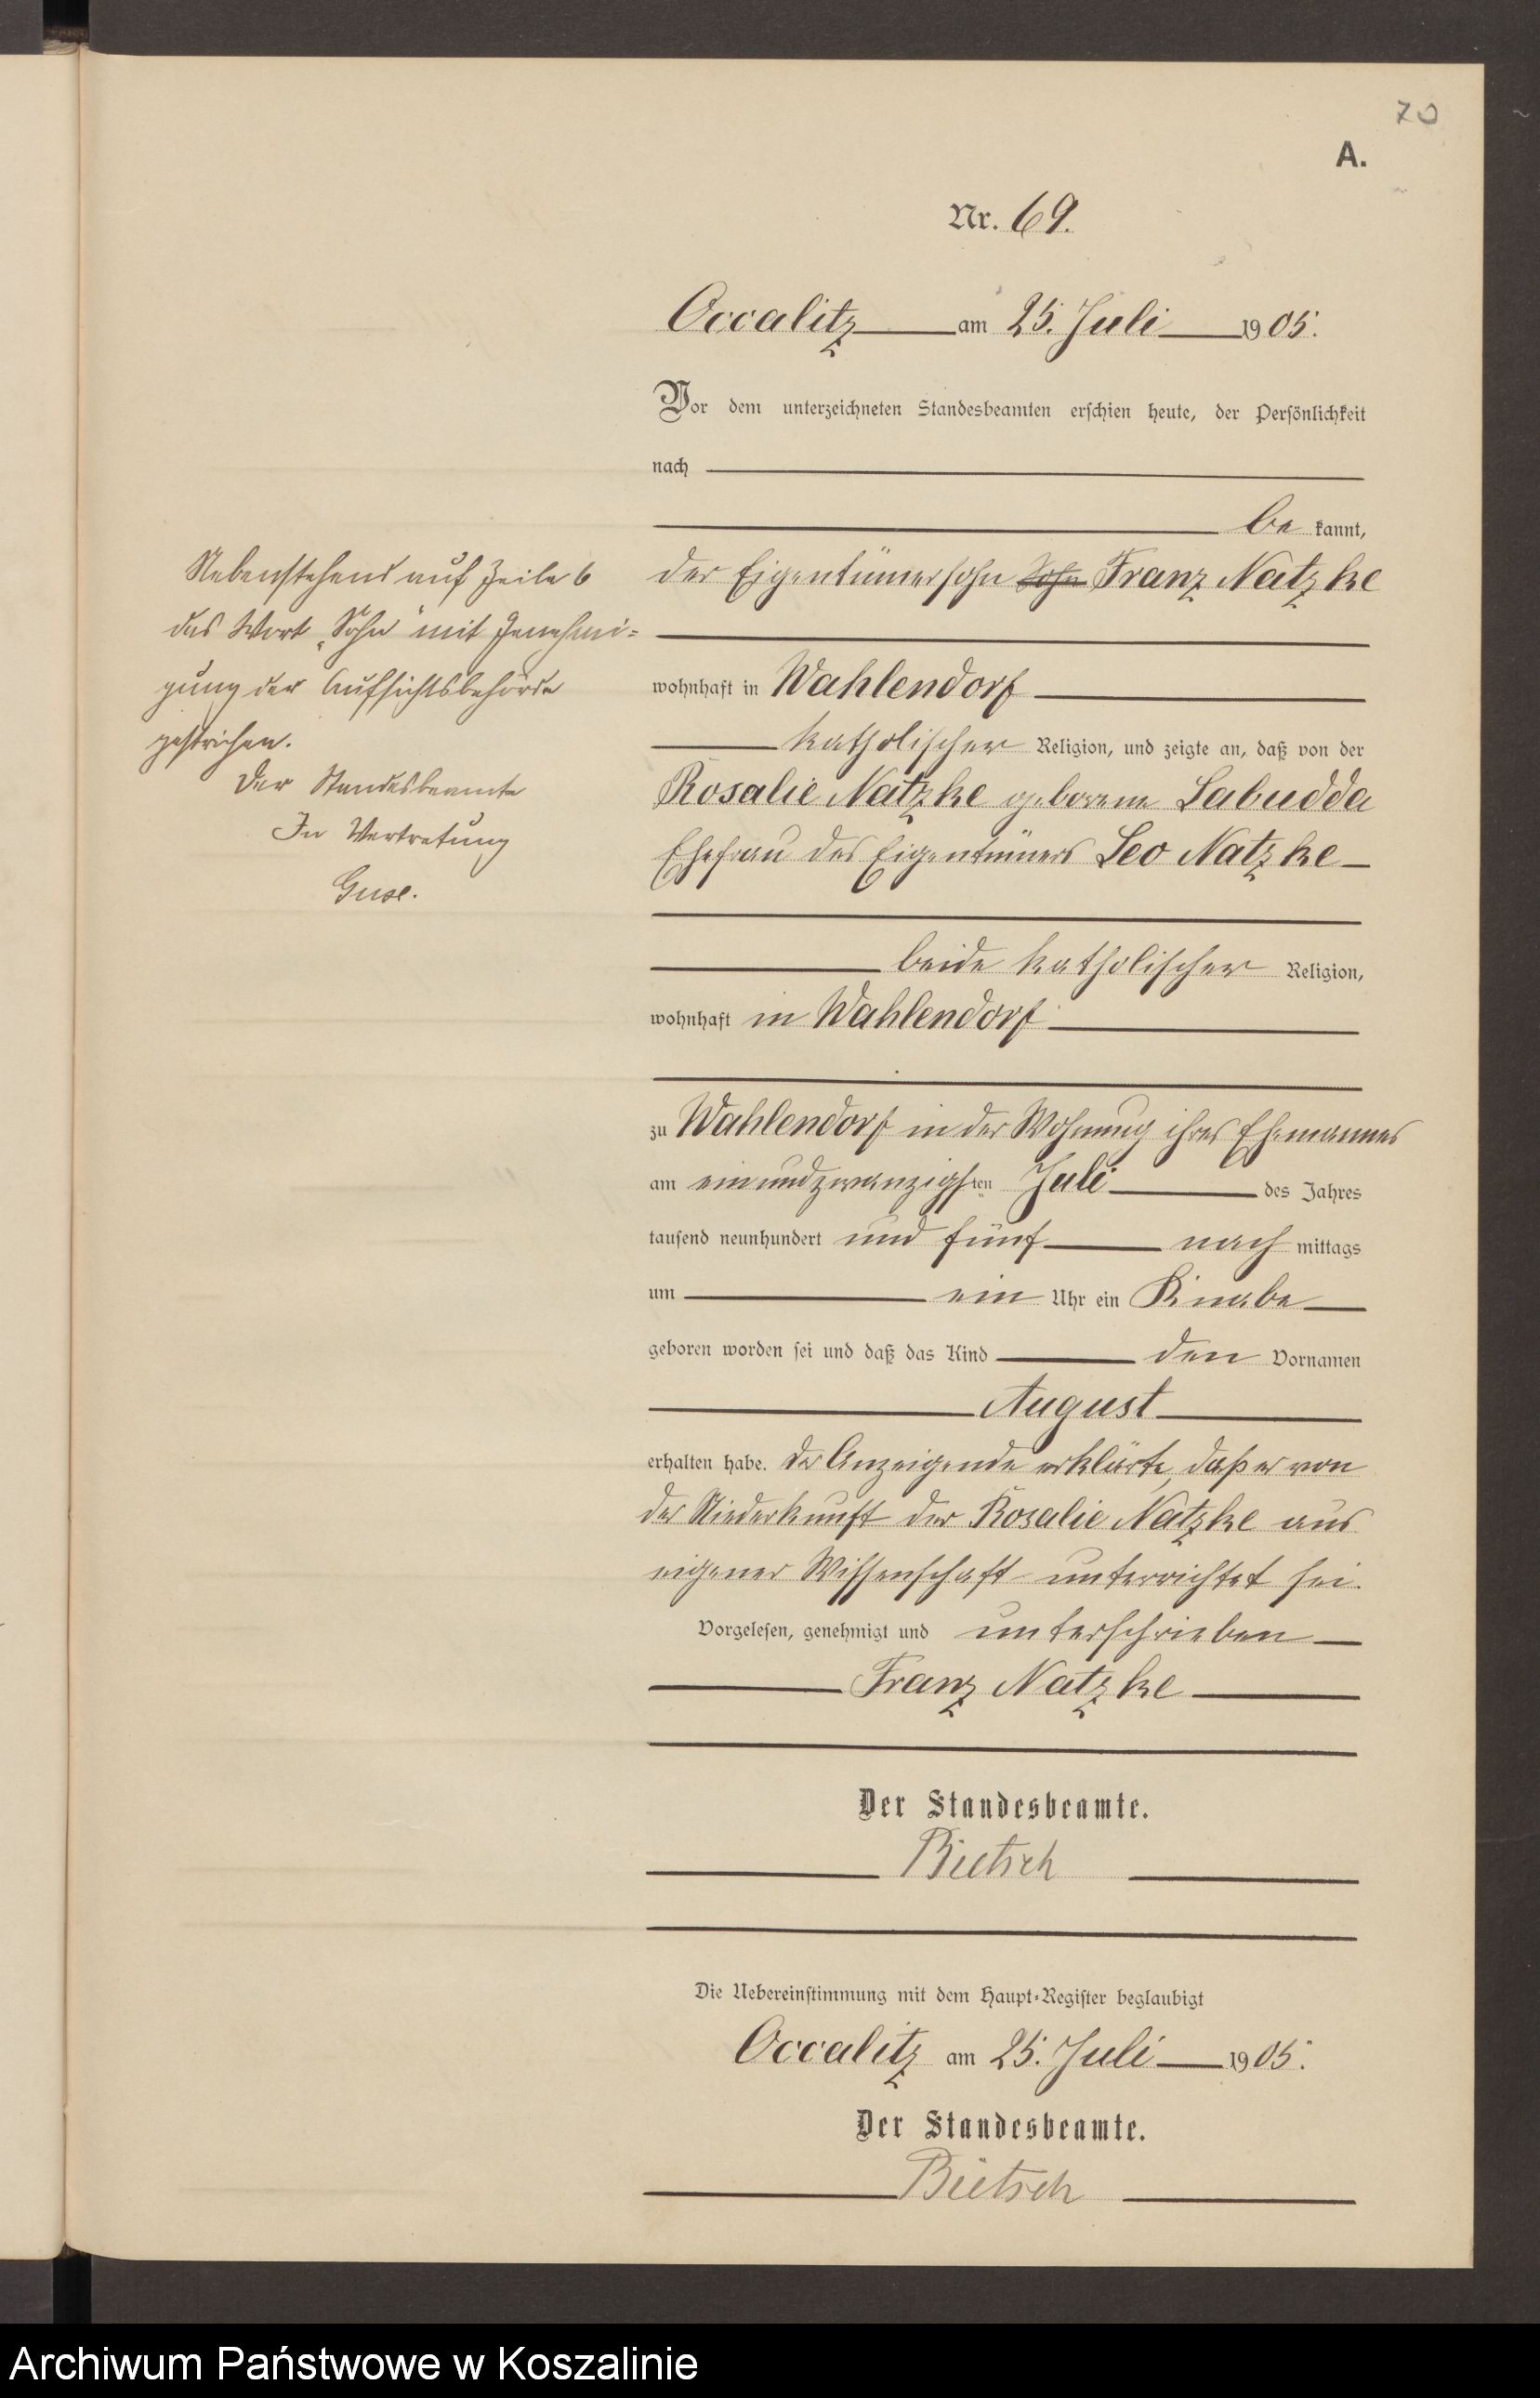 70
A.
Nr. 69.
Occalitz am 25. Juli 1905.
Vor dem unterzeichneten Standesbeamten erschien heute, der Persönlichkeit
nach
be kannt,
der Eigentümersohn Sohn Franz Natzke
wohnhaft in Wahlendorf
katholischer Religion, und zeigte an, daß von der
Rosalie Natzke geborene Labudda
Ehefrau des Eigentümers Leo Natzke
beide katholischer Religion,
wohnhaft in Wahlendorf
zu Wahlendorf in der Wohnung ihres Ehemannes
am einundzwanzigsten Juli des Jahres
tausend neunhundert und fünf nach mittags
um ein Uhr ein Knabe
geboren worden sei und daß das Kind den Vornamen
August
erhalten habe. Der Anzeigende erklärte, daß er von
der Niederkunft der Rosalie Natzke aus
eigener Wissenschaft unterrichtet sei.
Vorgelesen, genehmigt und unterschrieben
Franz Natzke
Der Standesbeamte.
Bietsch
Die Uebereinstimmung mit dem Haupt-Register beglaubigt
Occalitz am 25. Juli 1905.
Der Standesbeamte.
Bietsch
Nebenstehend auf Zeile 6
das Wort „Sohn" mit Genehmi=
gung der Aufsichtsbehörde
gestrichen.
Der Standesbeamte
In Vertretung
Guse.
Archiwum Państwowe w Koszalinie